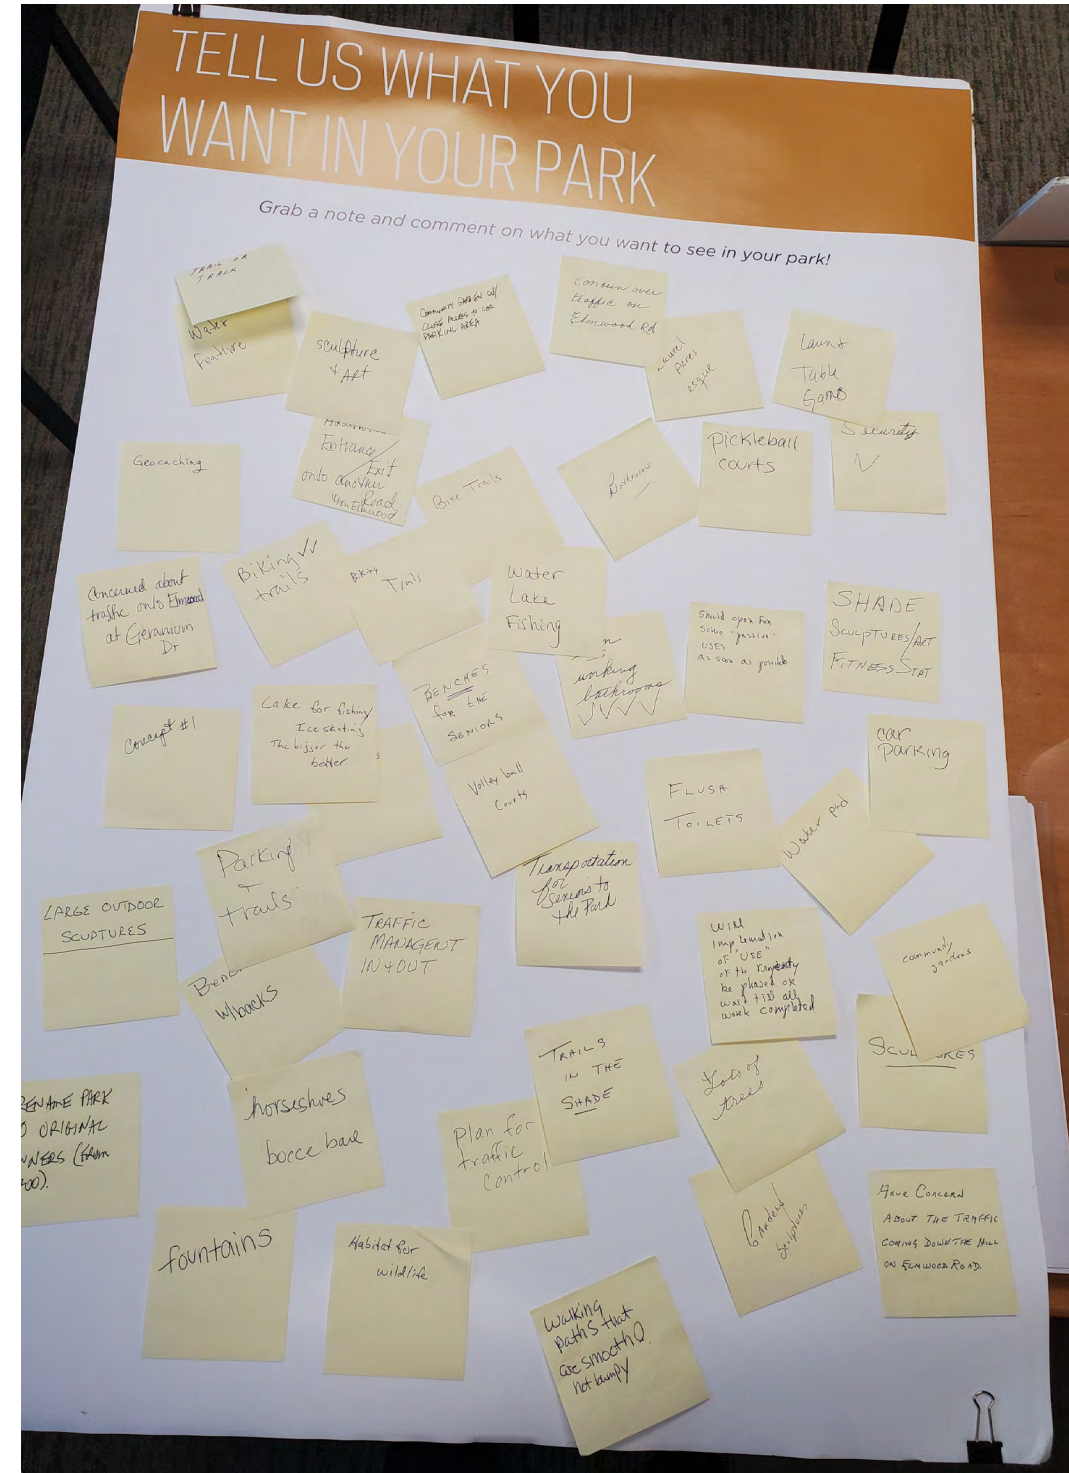 TELL US WHAT YOU
WANT IN YOUR PARK
Grab a note and comment on what you want to see in your park!
TRAIL OR
TRACK
Water
Feature
Sculpture
+ ART
COMMUNITY GARDEN W/
CLOSE ACCESS TO CAR
PARKING AREA.
Concern over
traffic on
Elmwood Rd
Laurel
Acres
esque
Lawn &
Table
Games
Geocaching
Entrance/
Exit
onto another
Road
than Elmwood
Bike Trails
Bathrooms
Pickleball
courts
Security
Concerned about
traffic onto Elmwood
at Geranium
Dr
Biking
trails
Biking
Trails
Water
Lake
Fishing
working
bathrooms
Should open for
some "passive"
USES
as soon as possible
SHADE
SCULPTURES/ART
FITNESS STAT
Concept #1
Lake for fishing/
Ice skating
The bigger the
better
BENCHES
for the
SENIORS
Volley ball
Courts
FLUSH
TOILETS
Water pad
car
parking
Parking
+
trails
LARGE OUTDOOR
SCUPTURES
TRAFFIC
MANAGENT
IN + OUT
Transportation
for
Seniors to
the Park
Will
implementation
of "USE"
of the property
be phased or
wait till all
work completed
community
gardens
w/backs
SCUL RES
TRAILS
IN THE
SHADE
Lots of
trees
RENAME PARK
ORIGINAL
horseshoes
bocce ball
Plan for
traffic
Control
Gardens/
Sculptures
Have Concern
ABOUT THE TRAFFIC
COMING DOWN THE HILL
ON ELMWOOD ROAD.
fountains
Habitat for
wildlife
Walking
paths that
are smooth
not bumpy